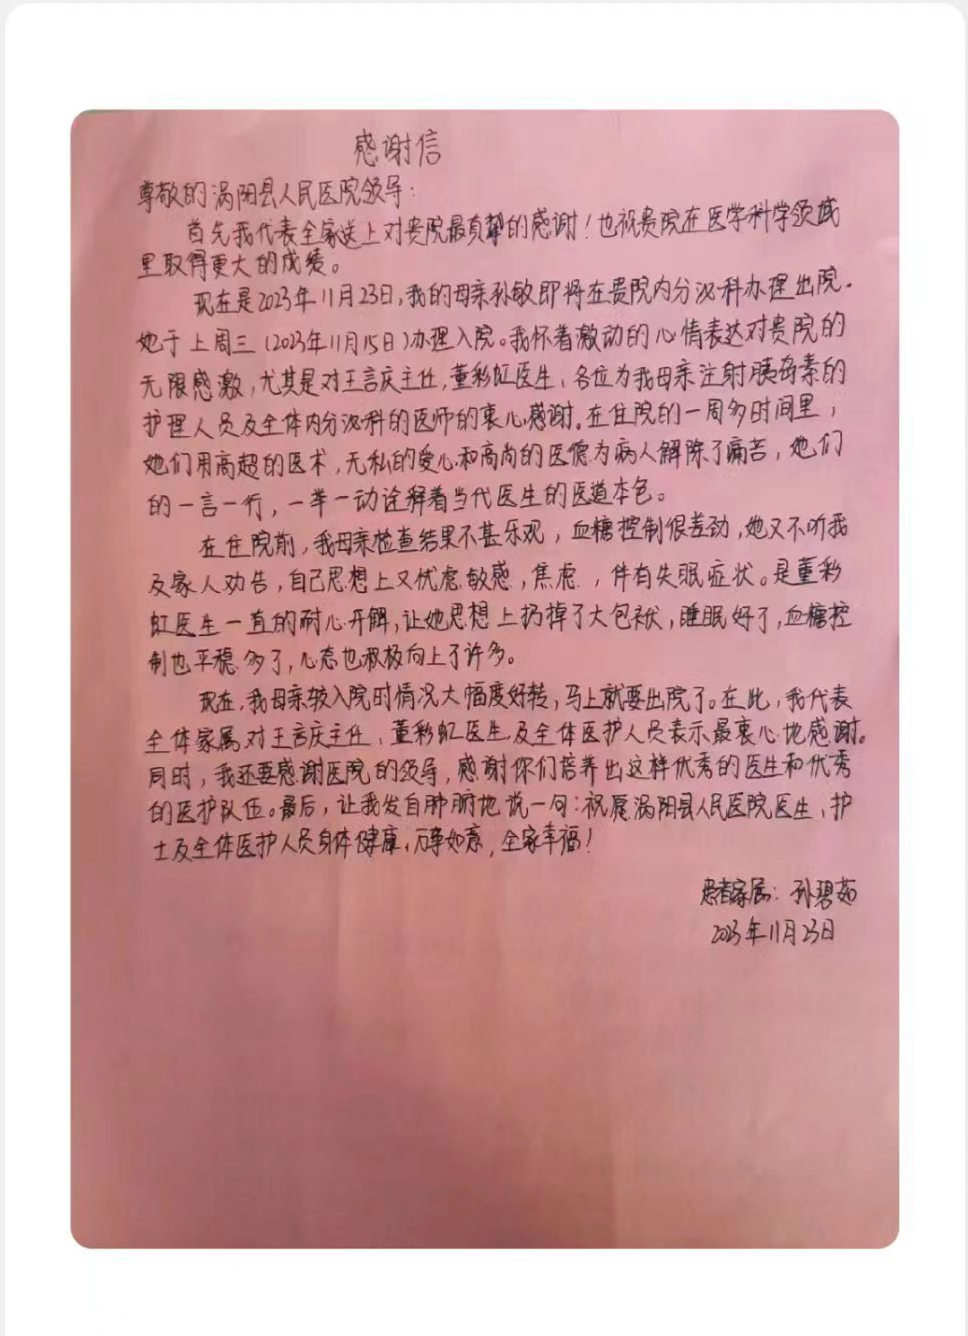 感谢信
尊敬的涡阳县人民医院领导：
首先我代表全家送上对贵院最真挚的感谢！也祝贵院在医学科学领域
里取得更大的成绩。
现在是2023年11月23日，我的母亲孙敏即将在贵院内分泌科办理出院。
她于上周三（2023年11月15日）办理入院。我怀着激动的心情表达对贵院的
无限感激，尤其是对王言庆主任，董彩虹医生，各位为我母亲注射胰岛素的
护理人员及全体内分泌科的医师的衷心感谢。在住院的一周多时间里，
她们用高超的医术，无私的爱心和高尚的医德为病人解除了痛苦，她们
的一言一行，一举一动诠释着当代医生的医道本色。
在住院前，我母亲检查结果不甚乐观，血糖控制很差劲，她又不听我
及家人劝告，自己思想上又忧虑敏感，焦虑，伴有失眠症状。是董彩
虹医生一直的耐心开解，让她思想上扔掉了大包袱，睡眠好了，血糖控
制也平稳多了，心态也积极向上了许多。
现在，我母亲较入院时情况大幅度好转，马上就要出院了。在此，我代表
全体家属对王言庆主任，董彩虹医生及全体医护人员表示最衷心地感谢。
同时，我还要感谢医院的领导，感谢你们培养出这样优秀的医生和优秀
的医护队伍。最后，让我发自肺腑地说一句：祝愿涡阳县人民医院医生，护
士及全体医护人员身体健康，万事如意，全家幸福！
患者家属：孙碧茹
2023年11月23日